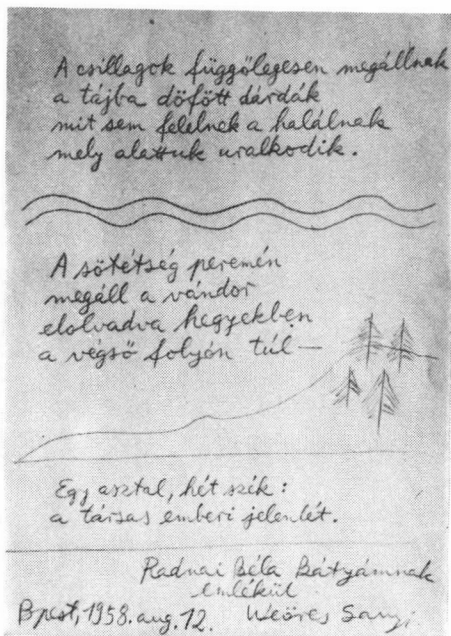 A csillagok függőlegesen megállnak
a tájba döfött dárdák
mit sem felelnek a halálnak
mely alattuk uralkodik.
A sötétség peremén
megáll a vándor
elolvadva hegyekben
a végső folyón túl—
Egy asztal, hét szék:
a társas emberi jelenlét.
Radnai Béla Bátyámnak
emlékül
Bpest, 1958. aug. 12. Weöres Sanyi